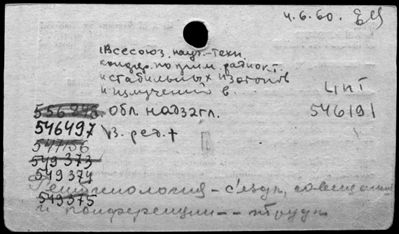 4.6.60.
Всесоюз. научн.-техн.
конфер. по прим. радиоакт.
и стабильных изотопов
и излучений в
обл. надзагл.
546191
556223
546497 \з. ред. +
547156
549373
549374
Рентгенология – съезды, совещания
549375
и конференции -- труды